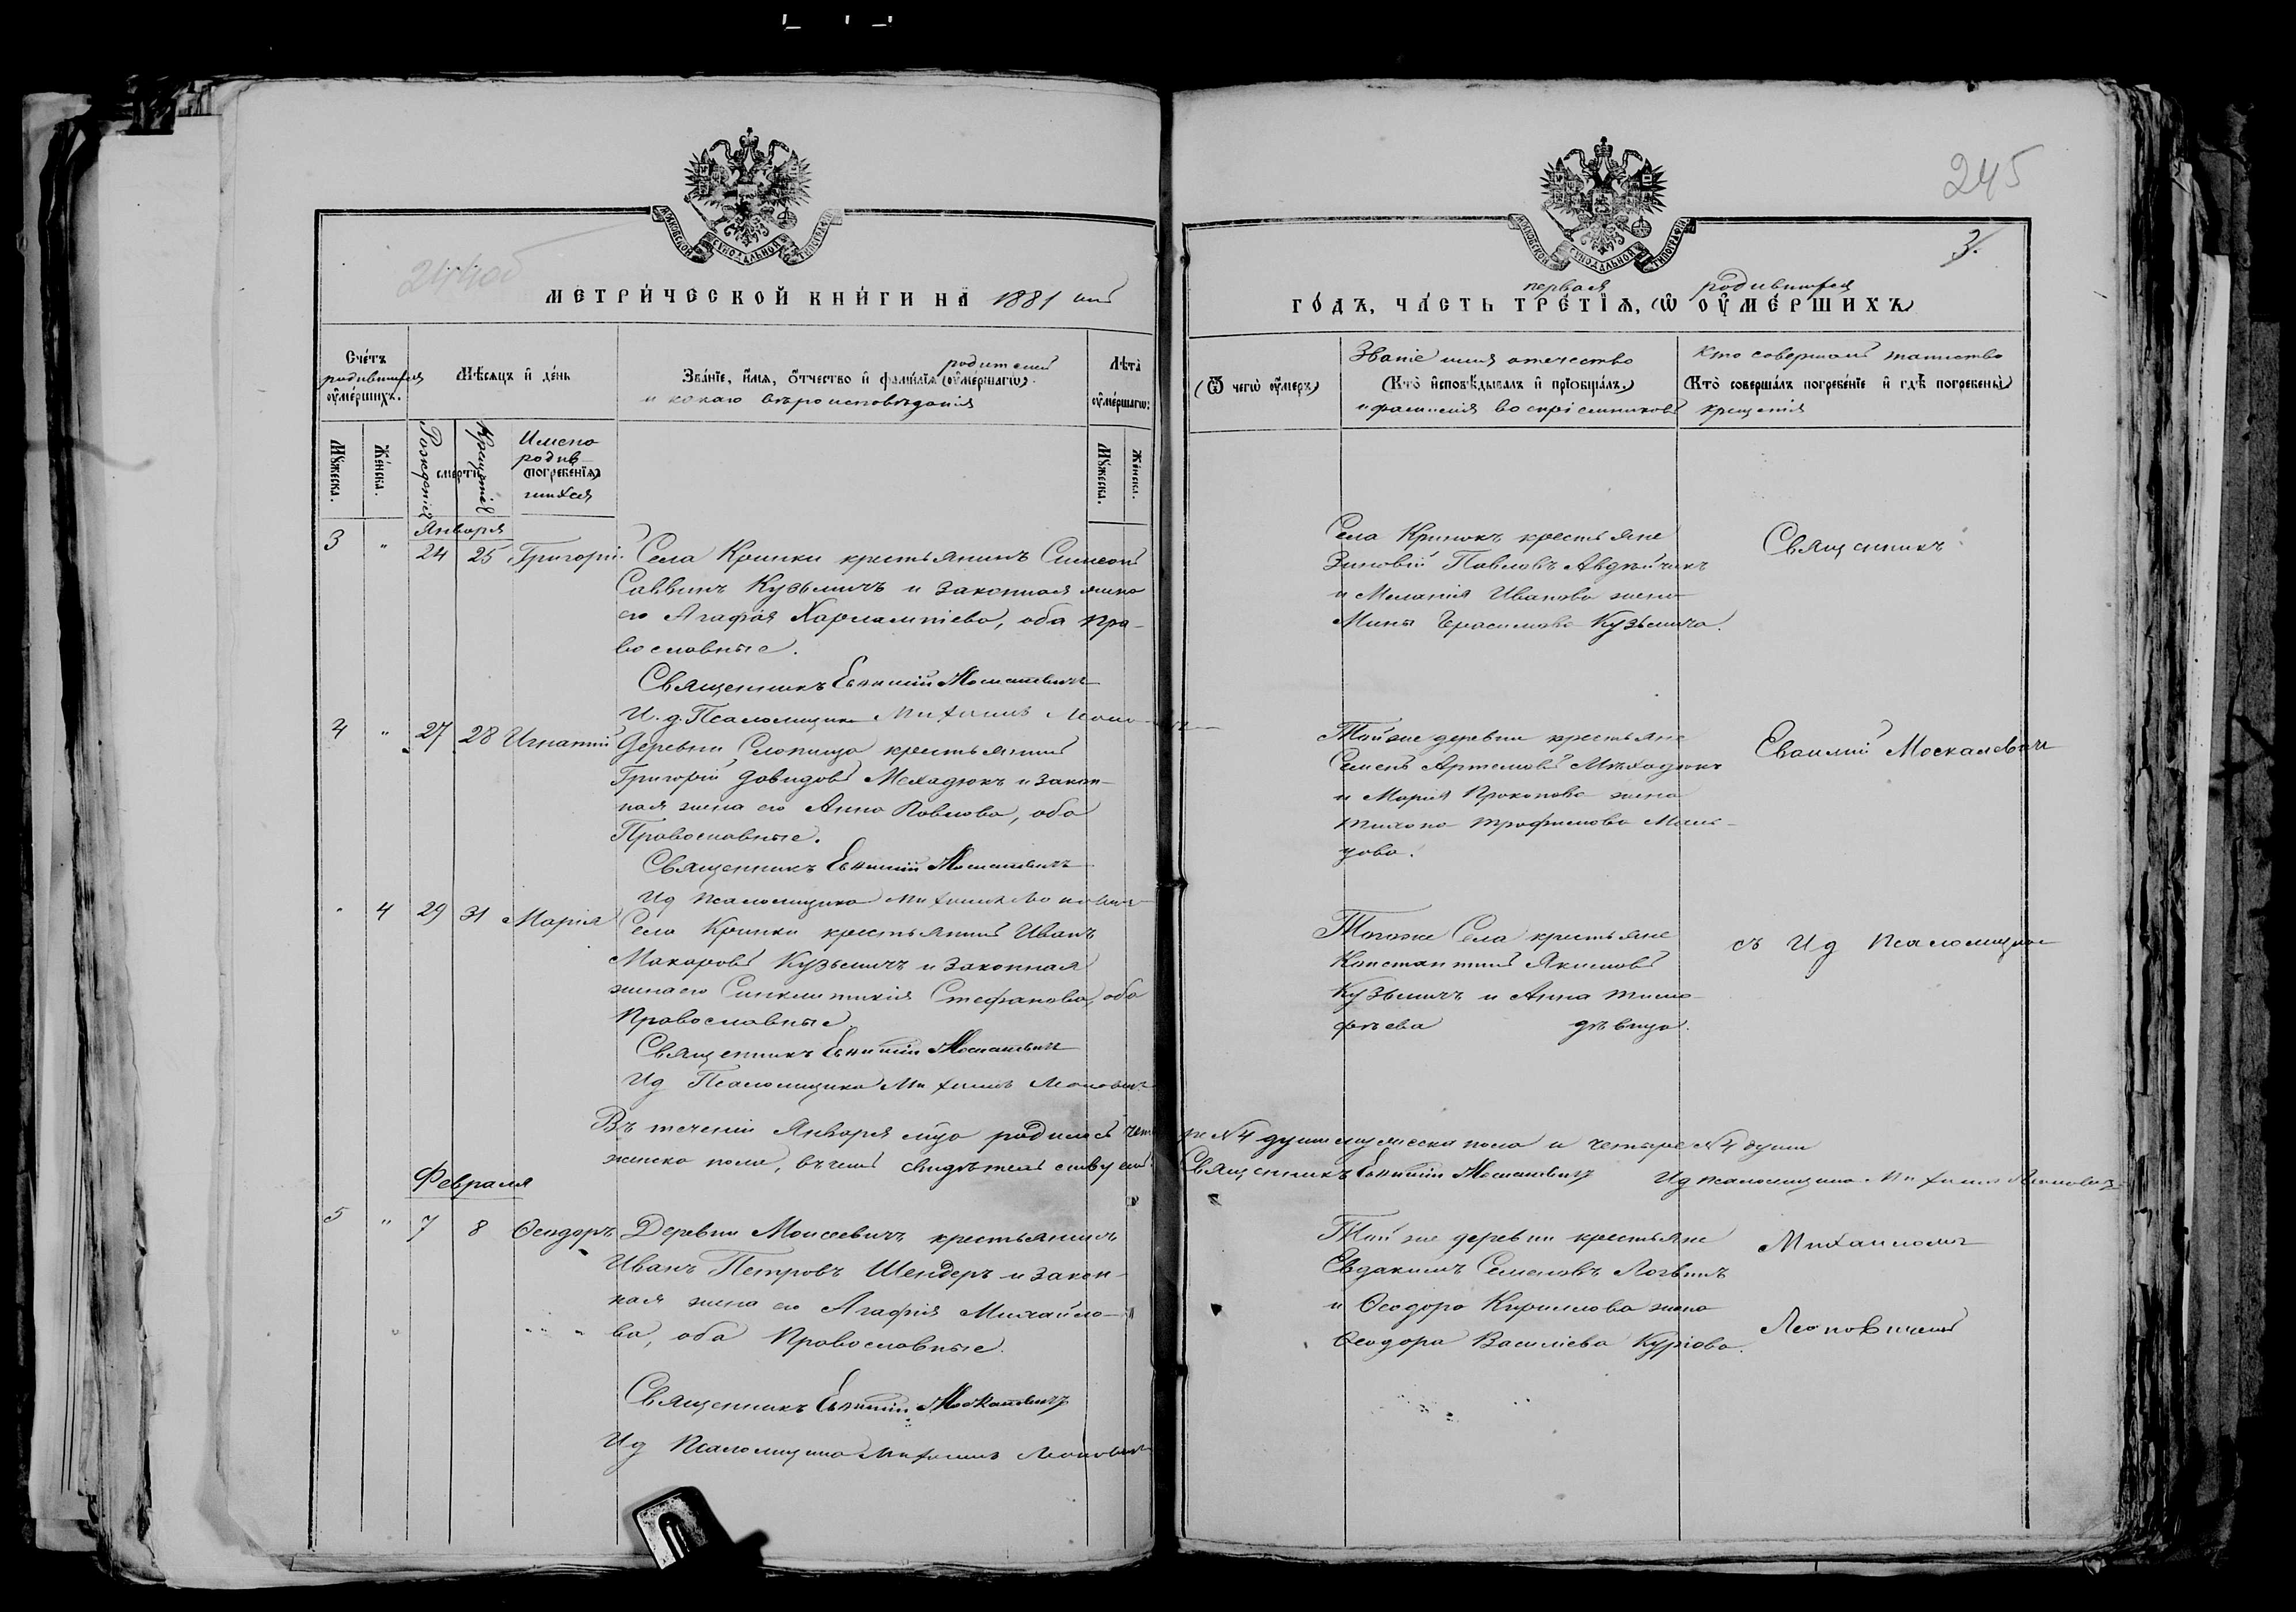 245
3.
МЕТРИ́ЧЕСКОЙ КНИ́ГИ НА 1881 ый
ГО́ДЪ, ЧА́СТЬ ТРЕ́ТЇѦ, Ѡ ОУ҆МЕ́РШИХЪ
первая родившихся
Сче́тъ родившихся оу҆ме́ршихъ.
Мѣ́сяцъ и҆ де́нь
Зва́нїе, и҆́мя, ѻ҆́тчество и҆ фами́лїя (оу҆ме́ршагѡ) родителей
и какого вѣроисповѣданія
Лѣ́та оу҆ме́ршагѡ:
(Ѿ чегѡ̀ оу҆́меръ)
Званіе имя отечество
(Кто̀ и҆сповѣ́дывалъ и҆ прїѡбща́лъ.)
и фамилія воспріемниковъ
Кто совершалъ таинство
(Кто̀ соверша́лъ погребе́нїе и҆ гдѣ̀ погребены̀)
крещенія
Мꙋ́жеска.
Же́нска.
Рожденія
сме́рти
Крещенія
Имена родив-
(погребе́нїя)
шихся
Мꙋ́жеска.
Же́нска.
Января
3 " 24 25 Григорій Села Кринки крестьянинъ Симеонъ
Саввинъ Кузьмичъ и законная жена
его Агафія Харлампіева, оба пра-
вославные.
Священникъ Евфимій Москалевичъ
И. д. Псаломщика Михаилъ Леонович
Села Кринокъ крестьяне
Зиновій Павловъ Авдѣйчикъ
и Меланія Иванова жена
Мины Герасимова Кузьмича.
Священникъ
4 " 27 28 Игнатій Деревни крестьянинъ
Григорій Давидовъ Мехадюкъ и закон-
ная жена его Анна Павлова, оба
Православные.
Священникъ Евфимій Москалевичъ
Ид Псаломщика Михаилъ Леонович
Той же деревни крестьяне
Семенъ Артемовъ Мѣхадюкъ
и Марія Прокопова жена
Тихона Трофимова
Москалевич
" 4 29 31 Марія Села Кринки крестьянинъ Иванъ
Макаровъ Кузьмичъ и законная
жена его Синклитикія Стефанова, оба
Православные
Священникъ Евфимій Москалевичъ
Ид Псаломщика Михаилъ Леонович
Тогоже Села крестьяне
Константинъ Якимовъ
Кузьмичъ и Анна Тимо-
фѣева дѣвица.
съ Ид Псаломщика
Въ теченіи Января м-ца родилось четыре № 4 души мужеска пола и четыре № 4 души
женска пола, въ чемъ свидѣтельствуемъ Священникъ Евфимій Москалевичъ Ид Псаломщика Михаилъ Леонович
Февраля
5 " 7 8 Ѳеодоръ Деревни Моисеевичъ крестьянинъ
Иванъ Петровъ Шендеръ и закон-
ная жена его Агафія Михайло-
ва, оба Православные.
Священникъ Евфимій Москалевичъ
Ид Псаломщика Михаилъ Леонович
Той же деревни крестьяне
Евдокимъ Семеновъ Логвинъ
и Ѳеодора Кириллова жена
Ѳеодора Василіева
Михаиломъ
Леоновичемъ